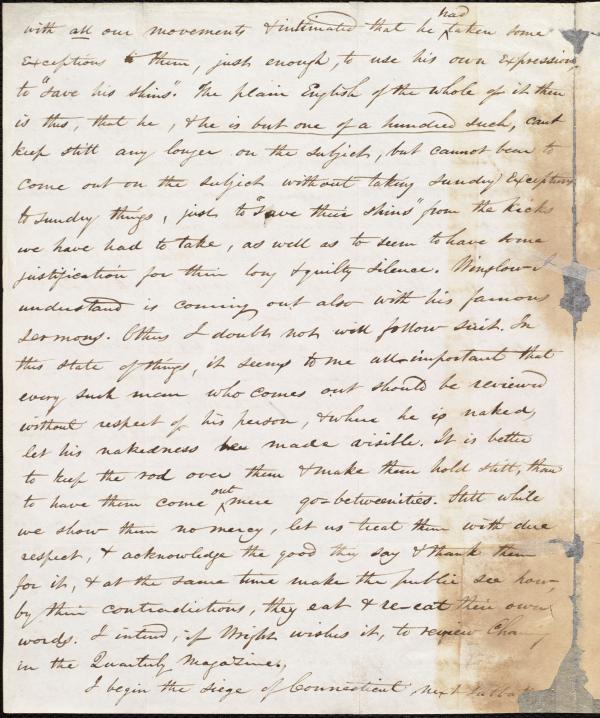 with all our movements & intimated that he had taken some
exceptions to them, just enough, to use his own expression,
to "save his shins". The plain English of the whole of it then
is this, that he, & he is but one of a hundred such, cant
keep still any longer on the subject, but cannot bear to
come out on the subject without taking sundry exceptions
to sundry things, just to "save their shins" from the kicks
we have had to take, as well as to seem to have some
justification for their long & guilty silence. Winslow I
understand is coming out also with his famous
sermons. Others I doubt not will follow suit. In
this state of things, it seems to me all-important that
every such man who comes out should be reviewed
without respect of his person, & where he is naked,
let his nakedness be made visible. It is better
to keep the rod over them & make them hold still, than
to have them come out mere go-betweenities. Still while
we show them no mercy, let us treat them with due
respect, & acknowledge the good they say & thank them
for it, & at the same time make the public see how,
by their contradictions, they eat & re-eat their own
words. I intend, if Wright wishes it, to review Channing
in the Quarterly Magazine.
I begin the siege of Connecticut next